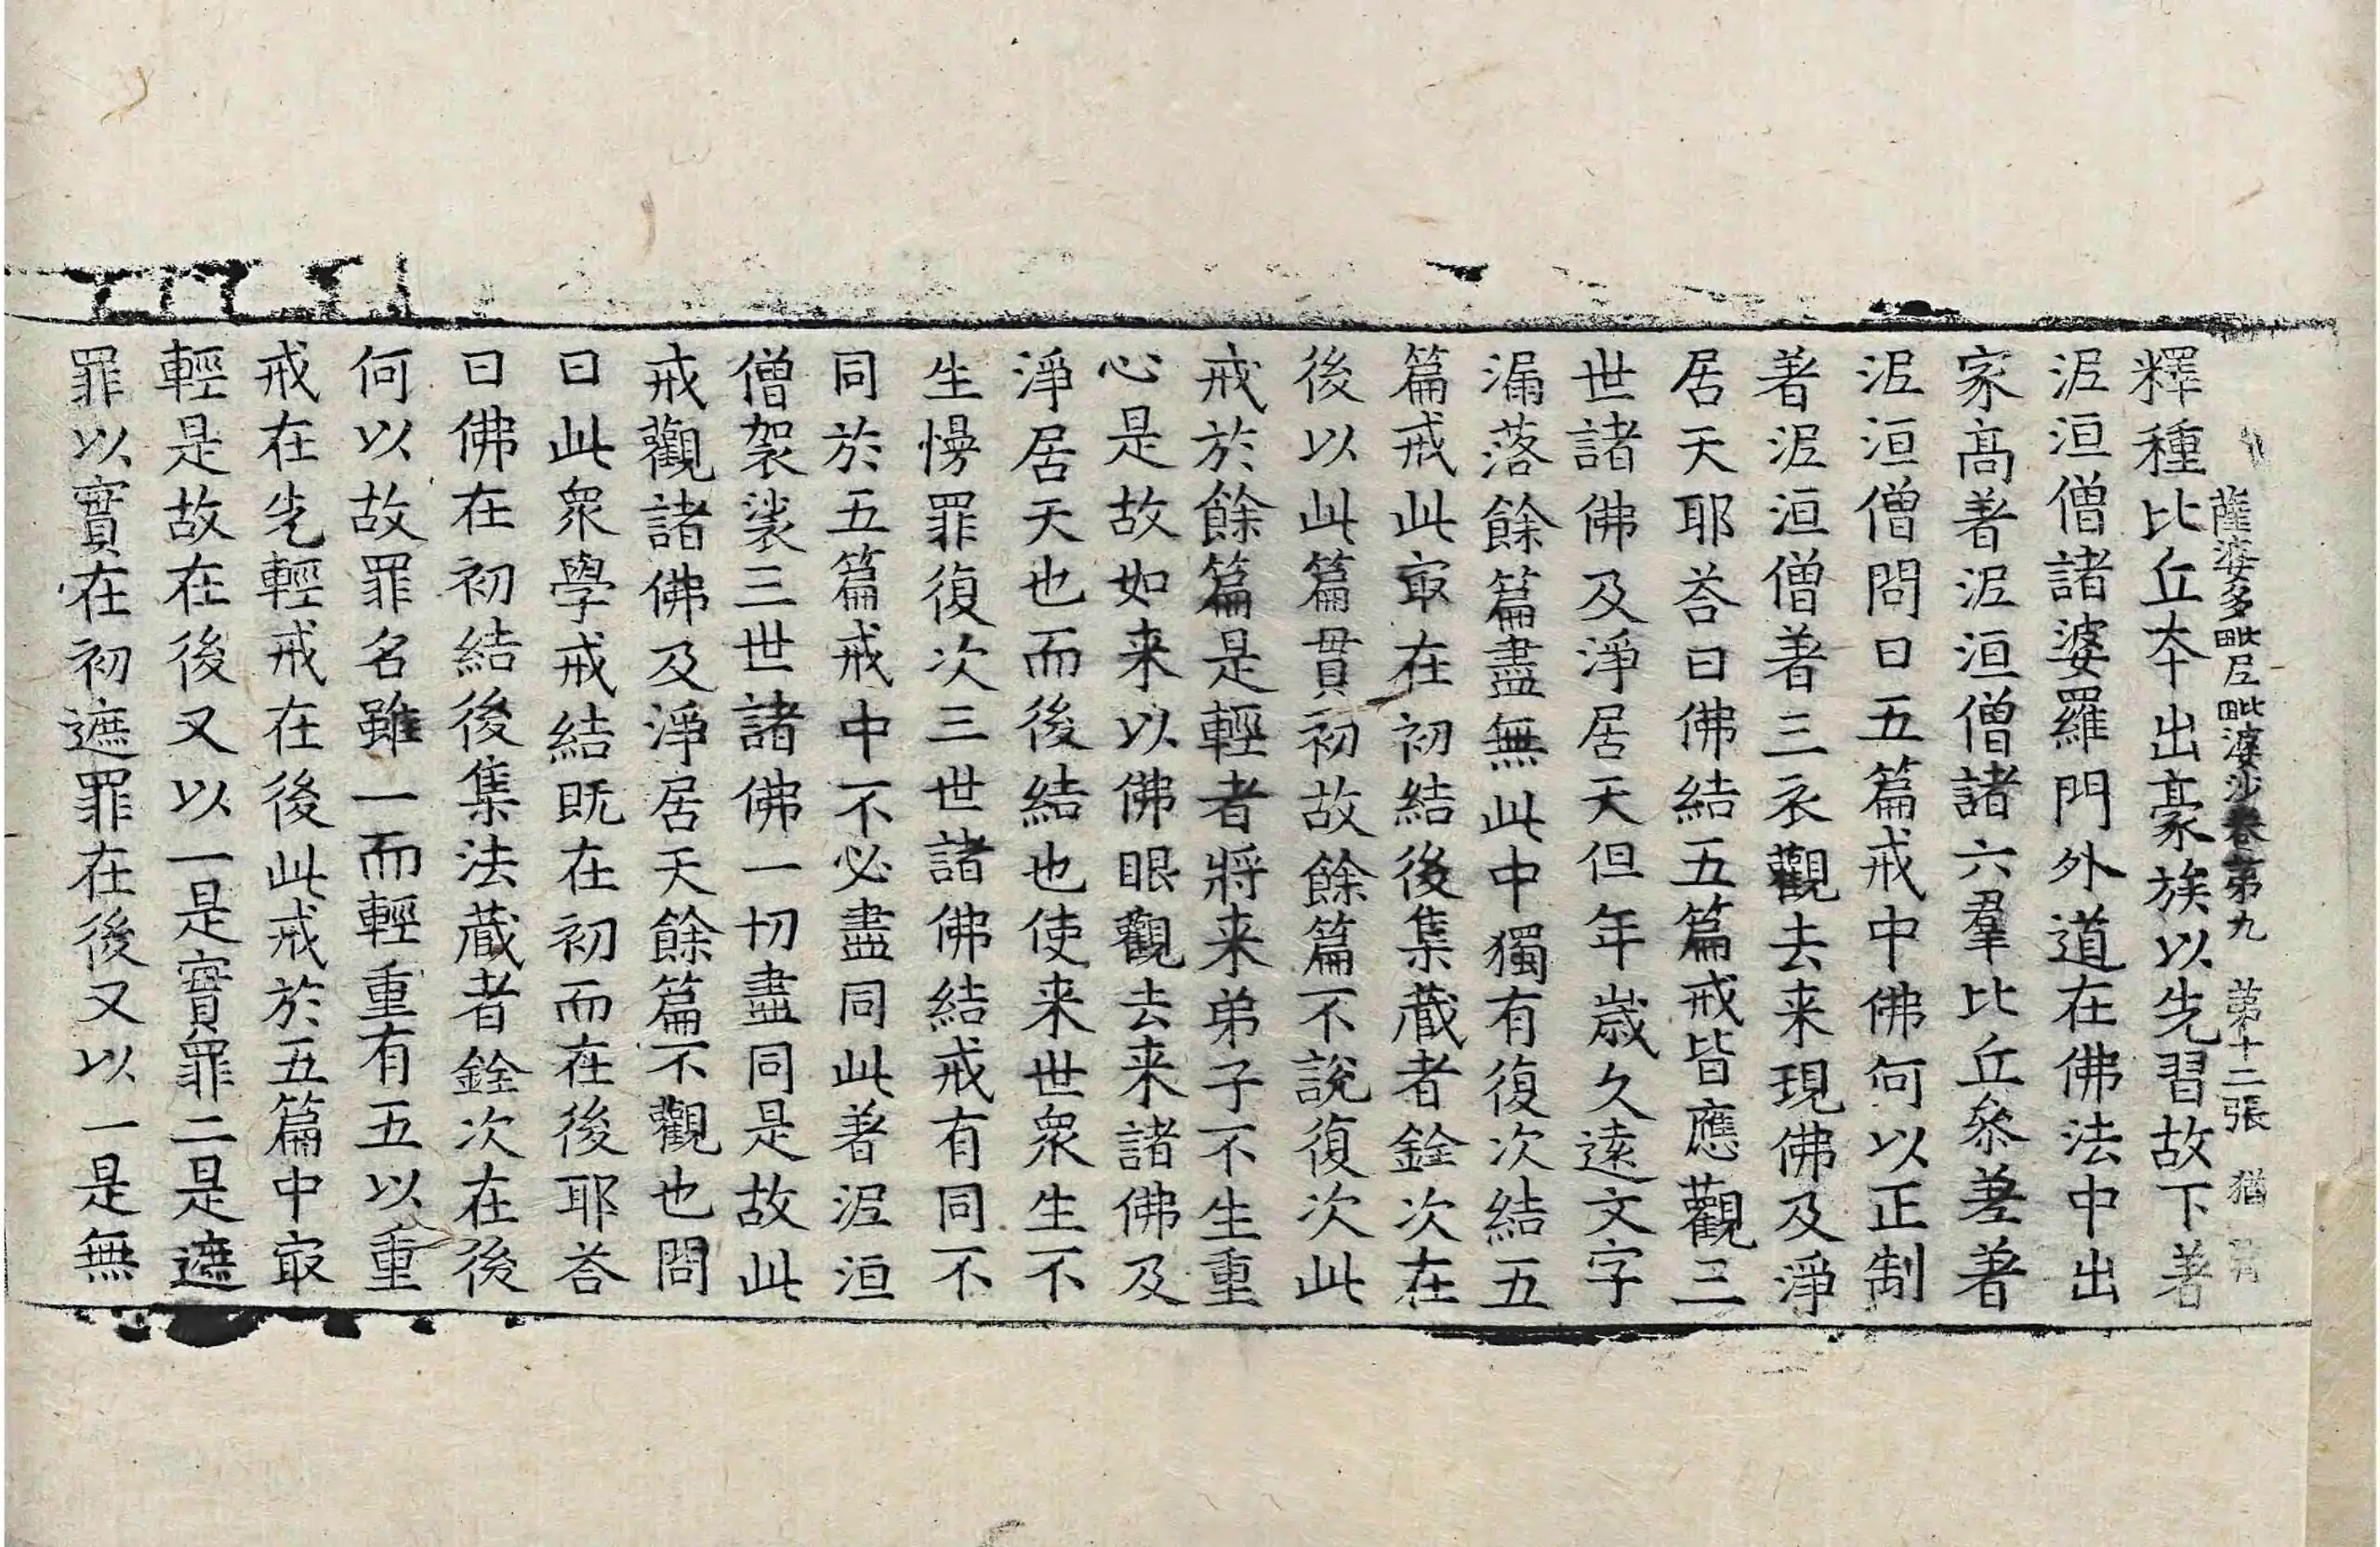 薩婆多毗尼毗婆沙卷第九　第十二張　猶
釋種比丘夲出豪族以先習故下著
泥洹僧諸婆羅門外道在佛法中出
家高著泥洹僧諸六羣比丘叅差著
泥洹僧問曰五篇戒中佛何以正制
著泥洹僧著三衣觀去来現佛及淨
居天耶荅曰佛結五篇戒皆應觀三
世諸佛及淨居天但年歲久遠文字
漏落餘篇盡無此中獨有復次結五
篇戒此㝡在初結後集藏者銓次在
後以此篇貫初故餘篇不說復次此
戒於餘篇是輕者將来弟子不生重
心是故如来以佛眼觀去来諸佛及
淨居天也而後結也使来世衆生不
生慢罪復次三世諸佛結戒有同不
同於五篇戒中不必盡同此著泥洹
僧袈裟三世諸佛一切盡同是故此
戒觀諸佛及淨居天餘篇不觀也問
曰此衆學戒結既在初而在後耶荅
曰佛在初結後集法藏者銓次在後
何以故罪名雖一而輕重有五以重
戒在先輕戒在後此戒於五篇中㝡
輕是故在後又以一是實罪二是遮
罪以實在初遮罪在後又以一是無